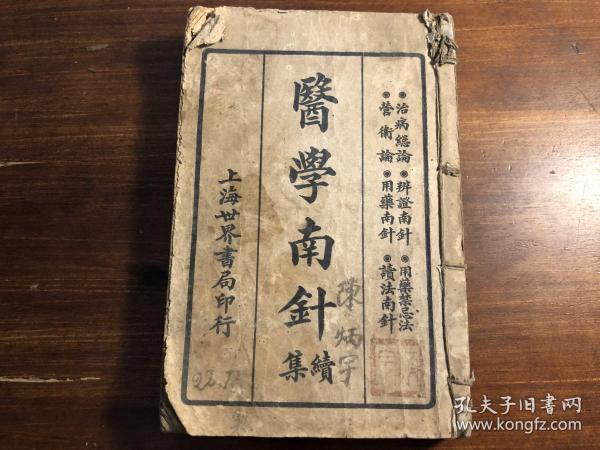 治病總論 辨證南針 用藥禁忌法
營衛論 用藥南針 讀法南針
醫學南針
續集
上海世界書局印行
陳炳宇
孔夫子旧书网
www.kongfz.com